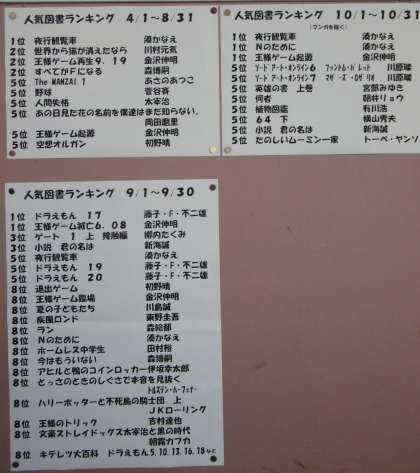 人気図書ランキング 4/1～8/31
1位 夜行観覧車 湊かなえ
2位 世界から猫が消えたなら 川村元気
2位 王様ゲーム再生9.19 金沢伸明
2位 すべてがFになる 森博嗣
5位 The MANZAI 1 あさのあつこ
5位 野球 菅谷斉
5位 人間失格 太宰治
5位 あの日見た花の名前を僕達はまだ知らない。
岡田麿里
5位 王様ゲーム起源 金沢伸明
5位 空想オルガン 初野晴
人気図書ランキング 10/1～10/31
(マンガを除く)
1位 夜行観覧車 湊かなえ
1位 Nのために 湊かなえ
1位 王様ゲーム起源 金沢伸明
5位 ソードアート・オンライン6 ファントム・バレット 川原礫
5位 ソードアート・オンライン7 マザーズ・ロザリオ 川原礫
5位 英雄の書 上巻 宮部みゆき
5位 何者 朝井リョウ
5位 植物図鑑 有川浩
5位 64 下 横山秀夫
5位 小説 君の名は 新海誠
5位 たのしいムーミン一家 トーベ・ヤンソ
人気図書ランキング 9/1～9/30
1位 ドラえもん 17 藤子・F・不二雄
1位 王様ゲーム滅亡6.08 金沢伸明
3位 ゲート 1 上 接触編 柳内たくみ
3位 小説 君の名は 新海誠
5位 夜行観覧車 湊かなえ
5位 ドラえもん 19 藤子・F・不二雄
5位 ドラえもん 20 藤子・F・不二雄
8位 退出ゲーム 初野晴
8位 王様ゲーム臨場 金沢伸明
8位 夏の子どもたち 川島誠
8位 疾風ロンド 東野圭吾
8位 ラン 森絵都
8位 Nのために 湊かなえ
8位 ホームレス中学生 田村裕
8位 今はもうない 森博嗣
8位 アヒルと鴨のコインロッカー 伊坂幸太郎
8位 とっさのときのしぐさで本音を見抜く
トルステン・ハーフェナー
8位 ハリーポッターと不死鳥の騎士団 上
JKローリング
8位 王様のトリック 吉村達也
8位 文豪ストレイドッグス太宰治と黒の時代
朝霧カフカ
8位 キテレツ大百科 ドラえもん5.10.13.16.18など